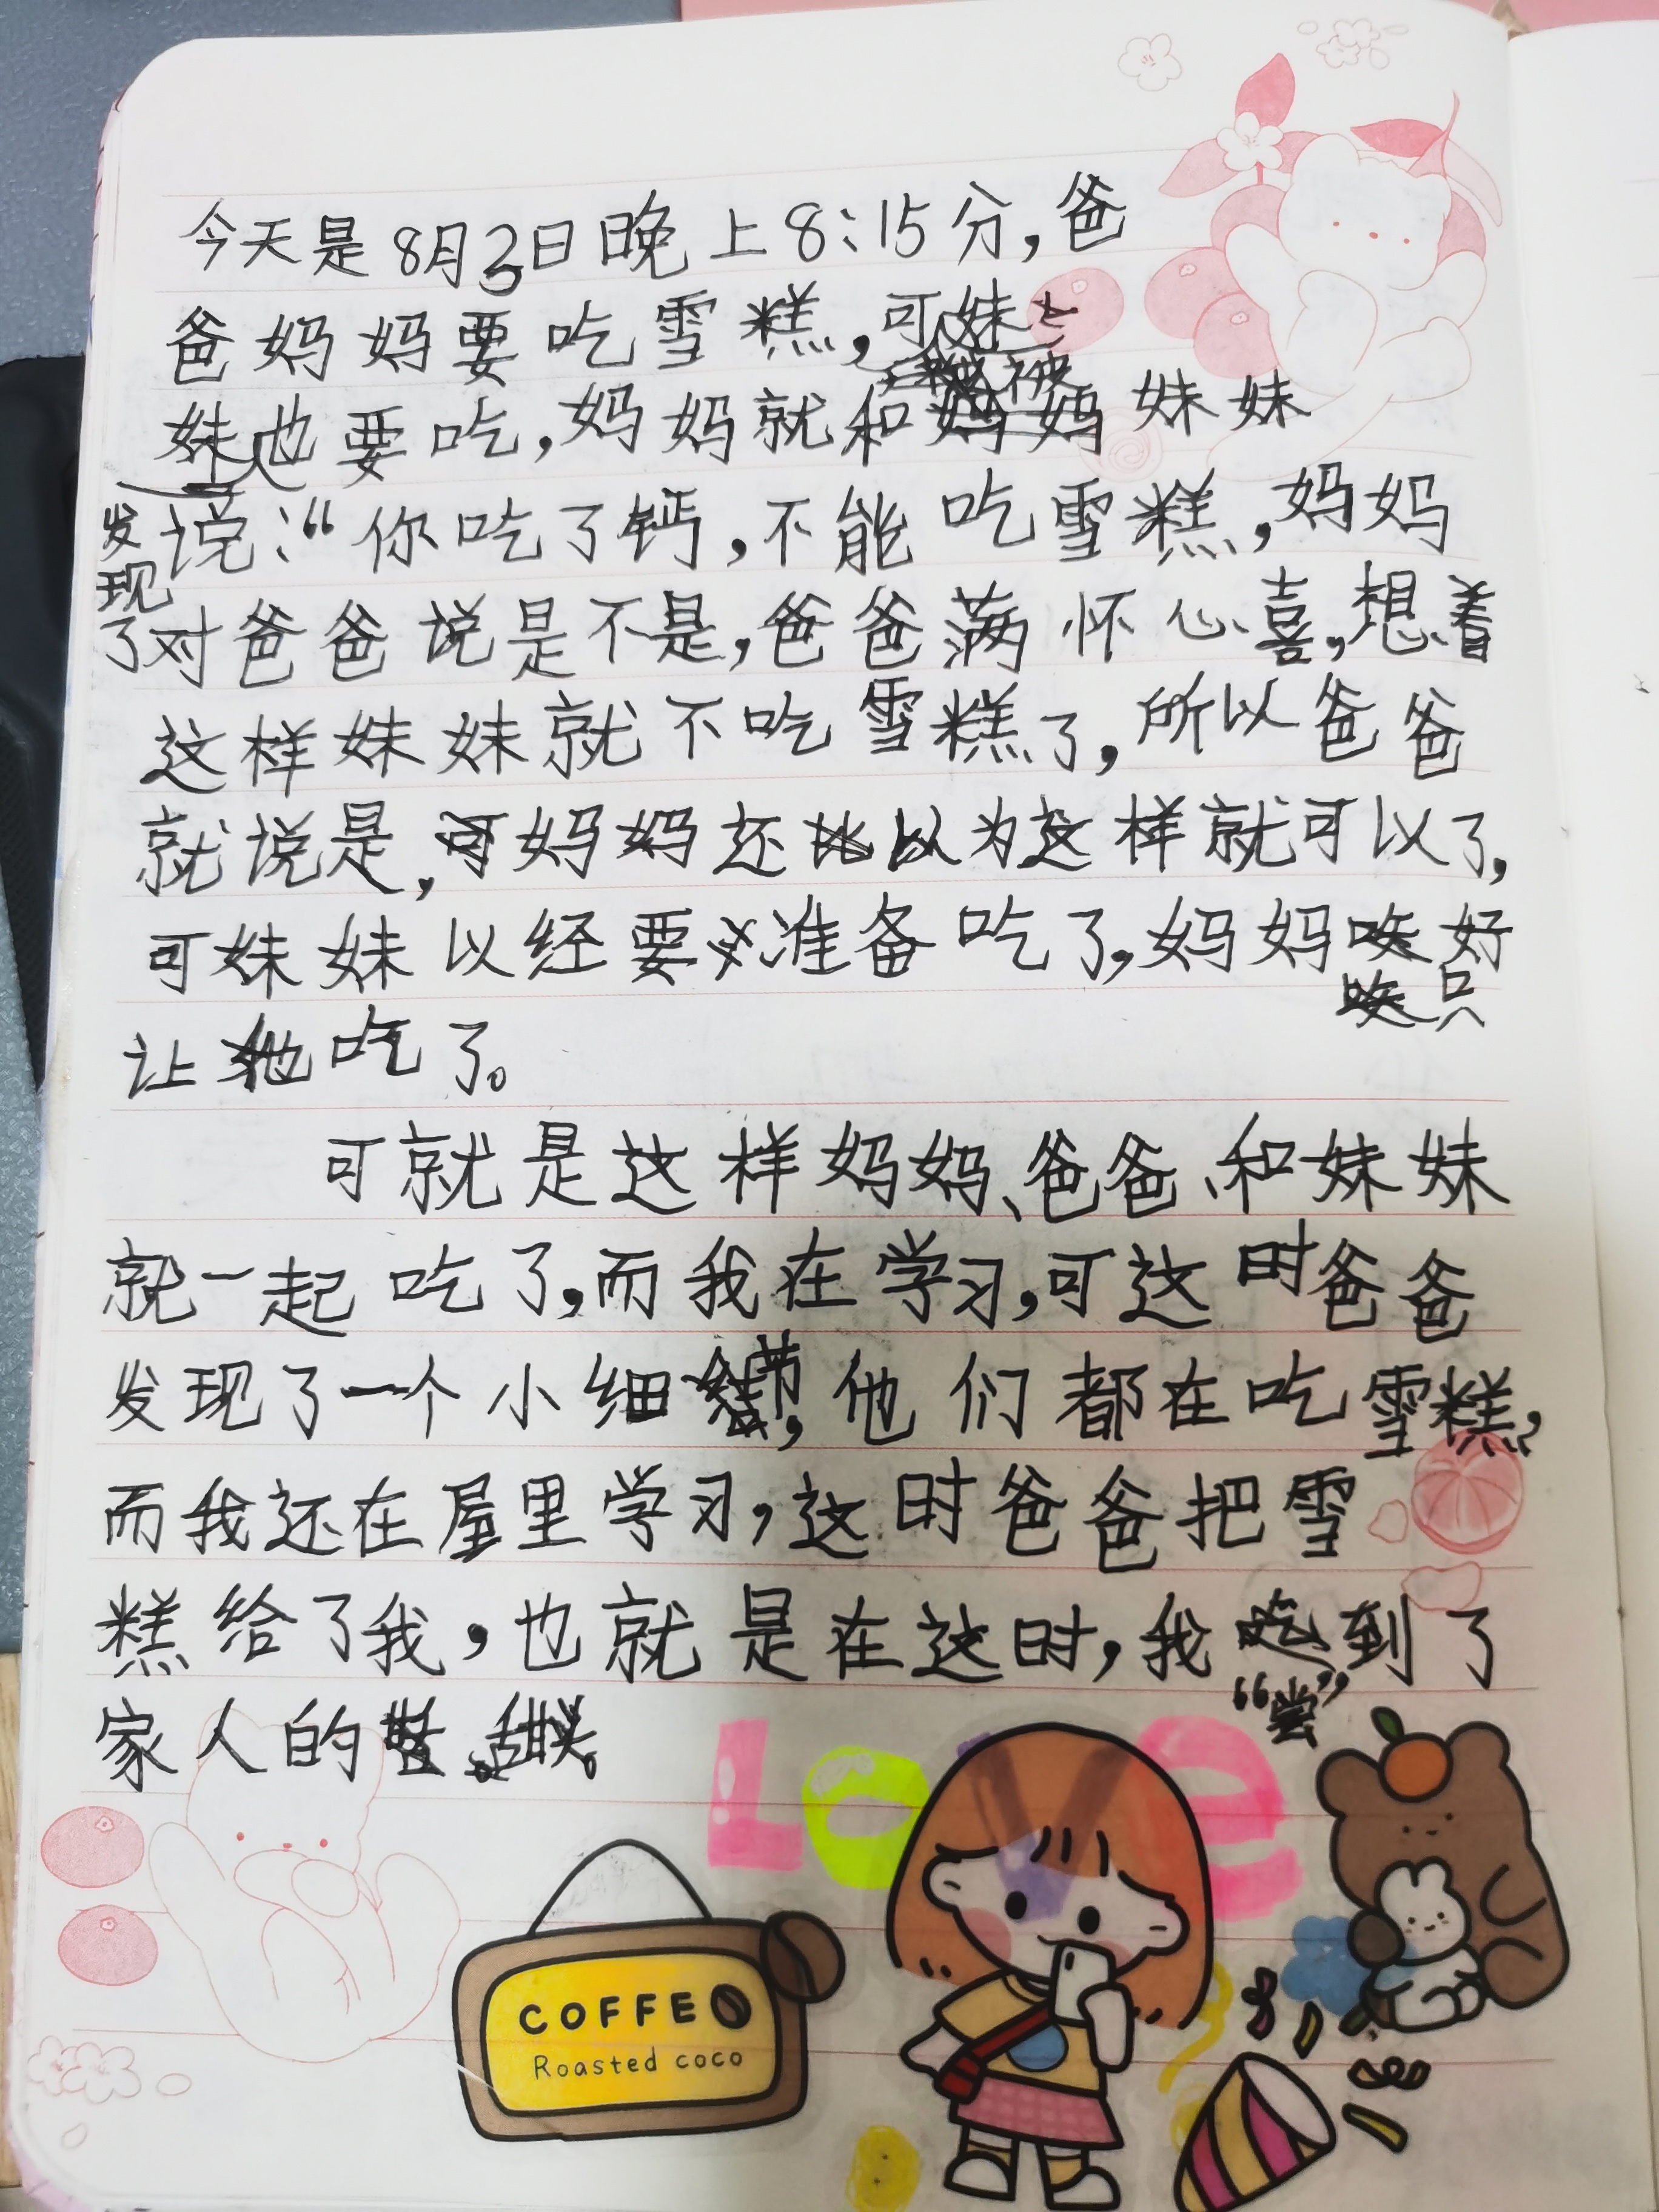 今天是8月3日晚上8:15分,爸
爸妈妈要吃雪糕,可妹
被
妹也要吃,妈妈就和妈妈妹妹
发现了
说:“你吃了钙,不能吃雪糕,妈妈
对爸爸说是不是,爸爸满怀心喜,想着
这样妹妹就不吃雪糕了,所以爸爸
就说是,可妈妈还以为这样就可以了,
可妹妹以经要准备吃了,妈妈唉好
唉只
让她吃了。
可就是这样妈妈、爸爸、和妹妹
就一起吃了,而我在学习,可这时爸爸
发现了一个小细节,他们都在吃雪糕,
而我还在屋里学习,这时爸爸把雪
糕给了我,也就是在这时,我吃到了
“尝”
家人的甜。
LOVE
COFFE
Roasted coco